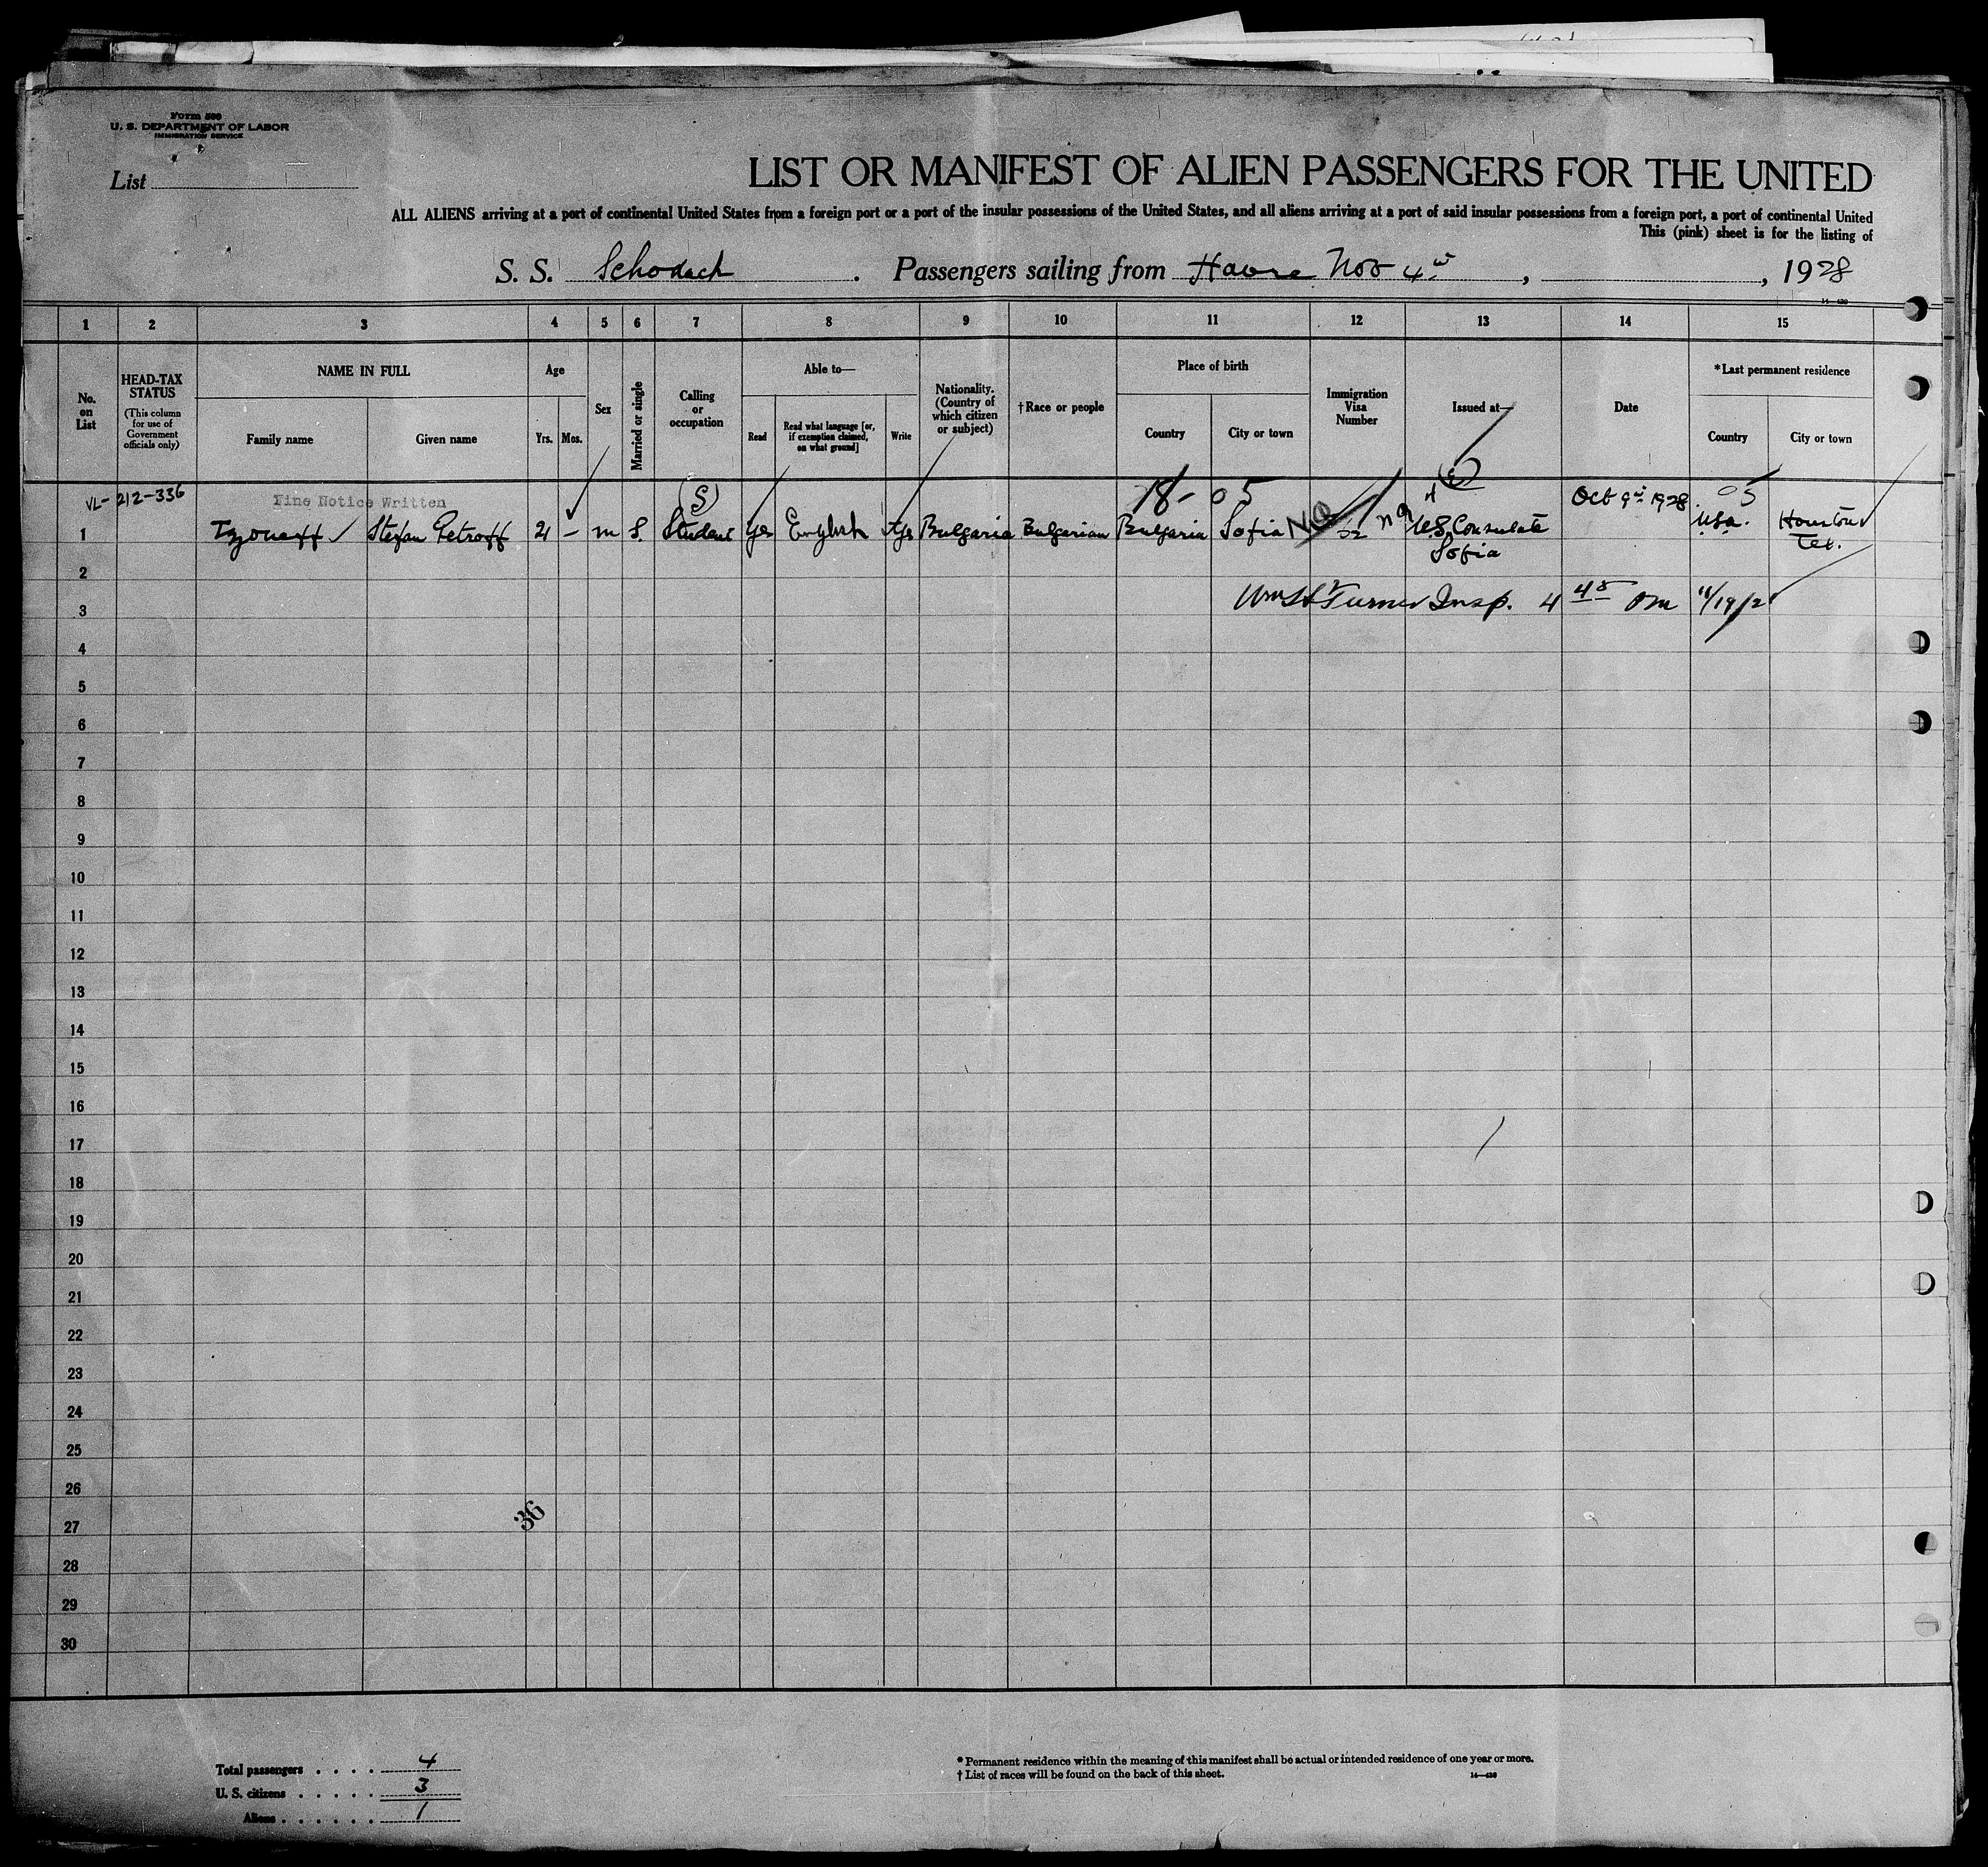 Form 500
U. S. DEPARTMENT OF LABOR
IMMIGRATION SERVICE
List
LIST OR MANIFEST OF ALIEN PASSENGERS FOR THE UNITED
ALL ALIENS arriving at a port of continental United States from a foreign port or a port of the insular possessions of the United States, and all aliens arriving at a port of said insular possessions from a foreign port, a port of continental United
This (pink) sheet is for the listing of
S. S. Schodack. Passengers sailing from Havre Nov 4th, , 1928
1 2 3 4 5 6 7 8 9 10 11 12 13 14 15
No. on List
HEAD-TAX STATUS
(This column for use of Government officials only)
NAME IN FULL
Family name Given name
Age
Yrs. Mos.
Sex
Married or single
Calling or occupation
Able to—
Read
Read what language [or, if exemption claimed, on what ground]
Write
Nationality. (Country of which citizen or subject)
†Race or people
Place of birth
Country City or town
Immigration Visa Number
Issued at—
Date
*Last permanent residence
Country City or town
VL-212-336 Fine Notice Written (S) 18- 05 Oct 9th 1928 05
1 Tzoneff Stefan Petroff 21 - m S. Student Yes English Yes Bulgaria Bulgarian Bulgaria Sofia U.S. Consulate Sofia USA. Houston Tex.
2
3 Turner Insp. 4 45 PM 11/19/28
4
5
6
7
8
9
10
11
12
13
14
15
16
17
18
19
20
21
22
23
24
25
26
27
28
29
30
36
Total passengers . . . . 4
U. S. citizens . . . . . 3
Aliens . . . . . . 1
* Permanent residence within the meaning of this manifest shall be actual or intended residence of one year or more.
† List of races will be found on the back of this sheet.